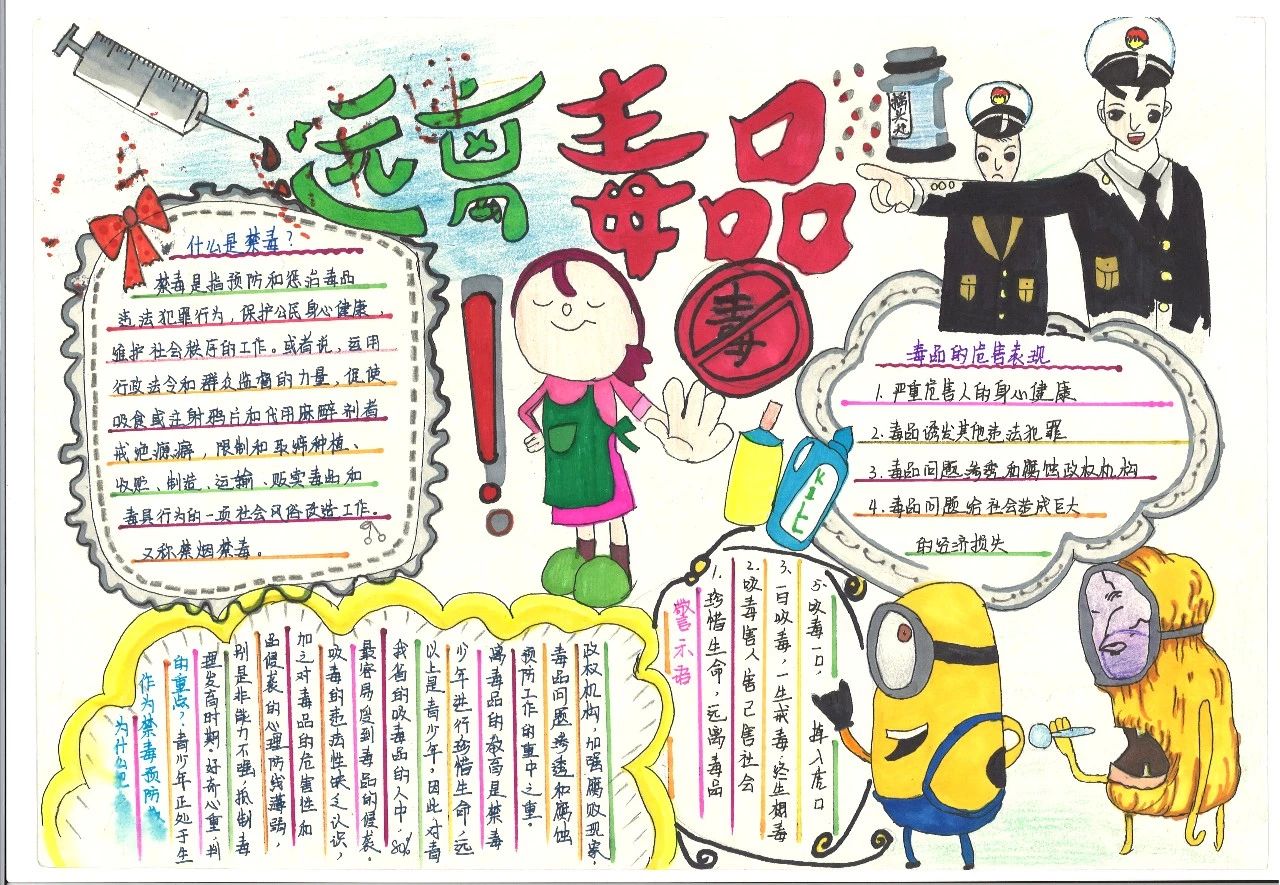 远离毒品
摇头丸
什么是禁毒？
禁毒是指预防和惩治毒品
违法犯罪行为，保护公民身心健康，
维护社会秩序的工作。或者说，运用
行政法令和群众监督的力量，促使
吸食或注射鸦片和代用麻醉剂者
戒绝瘾癖，限制和取缔种植、
收贮、制造、运输、贩卖毒品和
毒具行为的一项社会风俗改造工作。
又称禁烟禁毒。
毒
毒品的危害表现
1.严重危害人的身心健康
2.毒品诱发其他违法犯罪
3.毒品问题渗透和腐蚀政权机构
4.毒品问题给社会造成巨大
的经济损失
为什么把
作为禁毒预防
的重点？青少年正处于生
理发高时期，好奇心重，判
别是非能力不强，抵制毒
品侵袭的心理防线薄弱，
加之对毒品的危害性和
吸毒的违法性缺乏认识，
最容易受到毒品的侵袭。
我省的吸毒品的人中，80%
以上是青少年，因此，对青
少年进行珍惜生命、远
离毒品的教高是禁毒
预防工作的重中之重。
毒品问题渗透和腐蚀
政权机构，加强腐败现象，
警示名
1.珍惜生命，远离毒品
2.吸毒害人害己害社会
3.一日吸毒，一生戒毒终生想毒
5.吸毒一口，掉入虎口